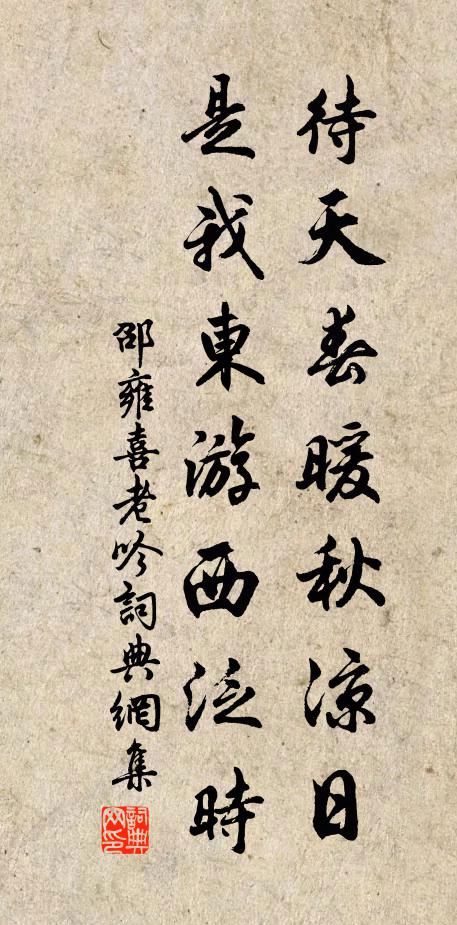 待天春暖秋涼日
是我東游西泛時
邵雍喜老吟詞典網集
詞典網印